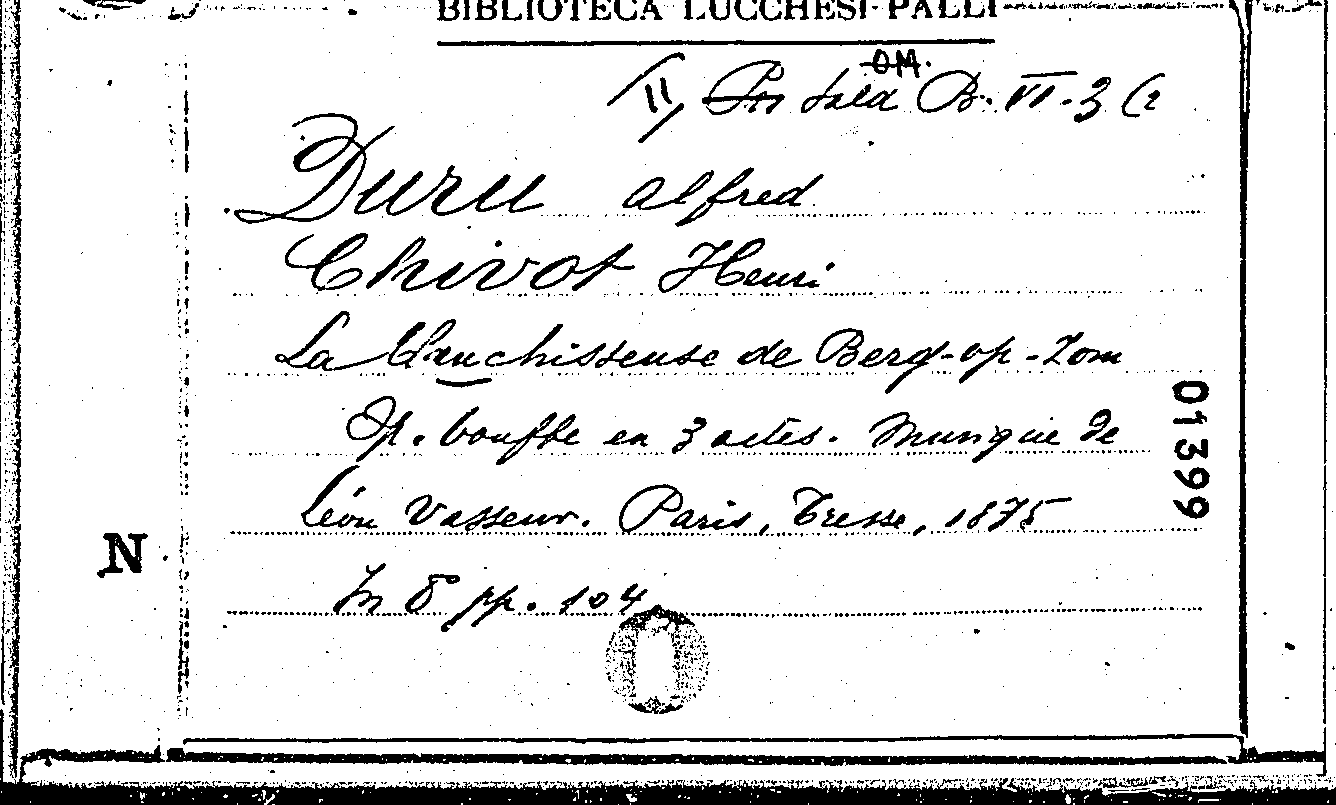 BIBLIOTECA LUCCHESI-PALLI
O.M.
II, Sala B. VI. 3 (2
Duru Alfred
Chivot Henri
La blanchisseuse de Berg-op-Zom
Op. bouffe en 3 actes. Musique de
Léon Vasseur. Paris, Tresse, 1875
In 8° pp. 104
N
01399